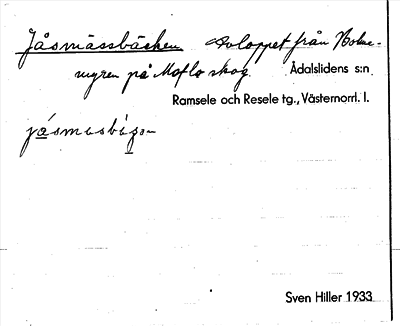 Jåsmässbäcken Avloppet från Bolme-
myren på Moflo skog. Ådalslidens s:n
Ramsele och Resele tg., Västernorrl. l.
Sven Hiller 1933